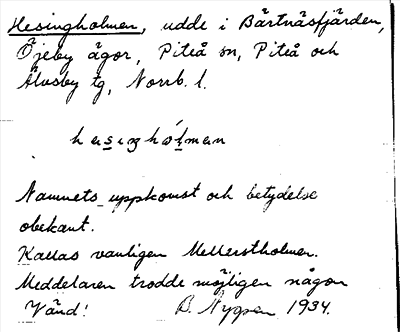 Hesingholmen, udde i Bärtnäsfjärden,
Öjeby ägor, Piteå sn, Piteå och
Älvsby tg, Norrb. l.
hesiŋhólmen
Namnets uppkomst och betydelse
obekant.
Kallas vanligen Mellerstholmen.
Meddelaren trodde möjligen någon
Vänd! B. Nygren 1934.